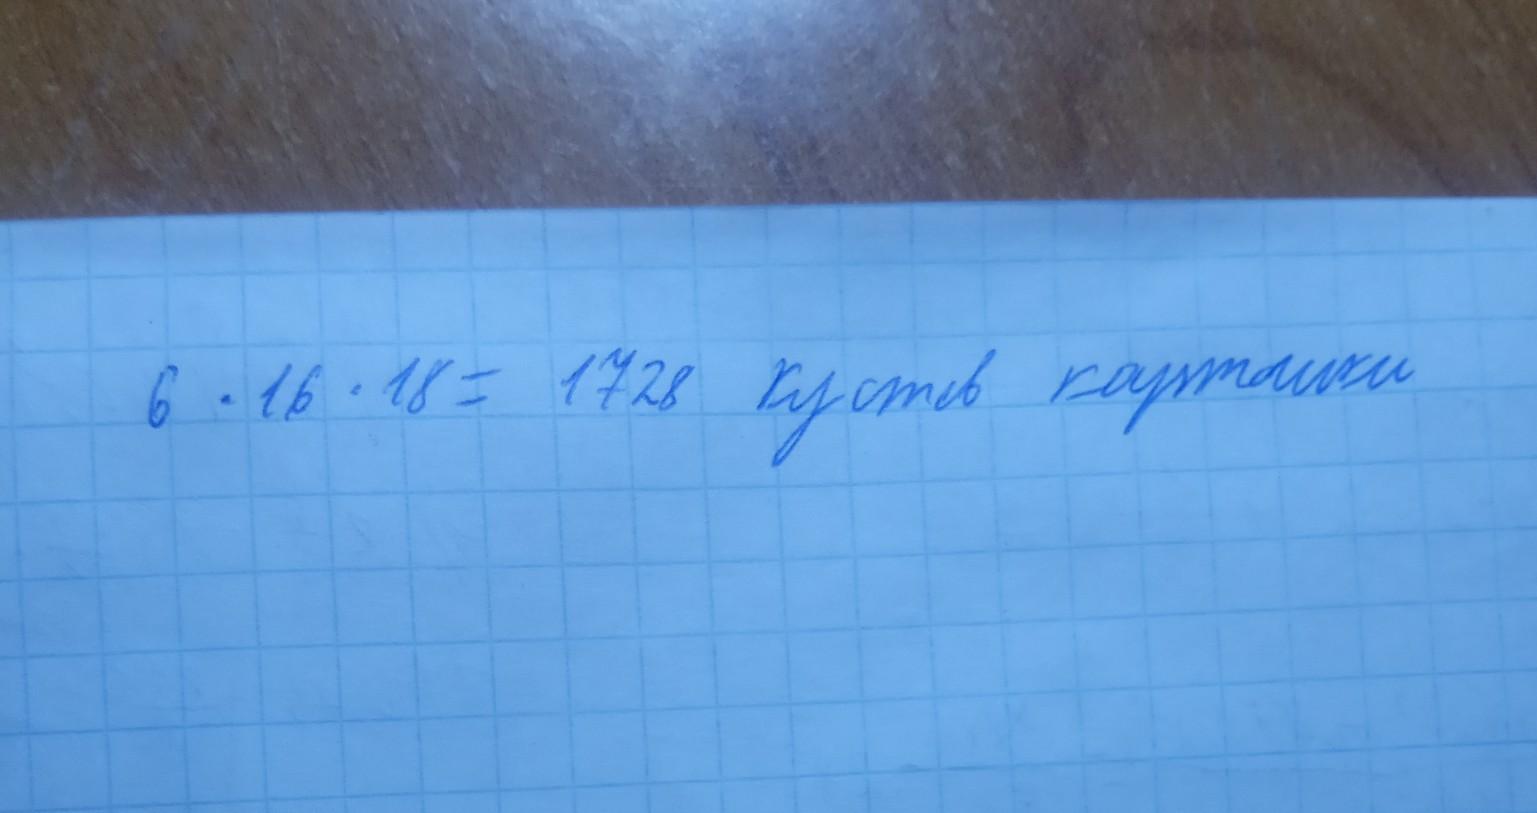 6 · 16 · 18 = 1728 куств картошки